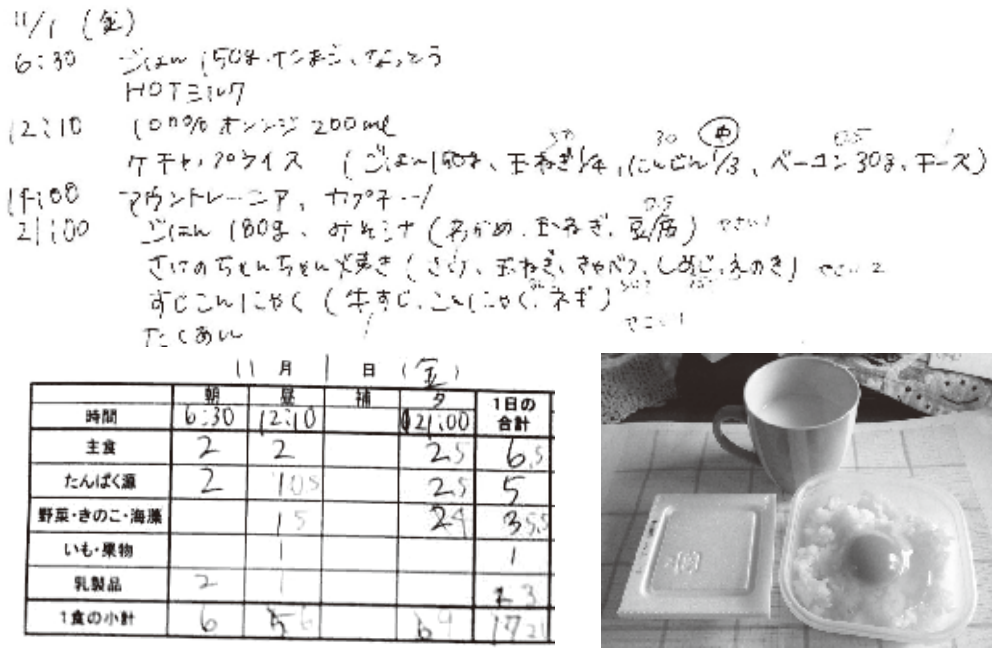 11/1 (金)
6:30 ごはん150g、たまご、なっとう
HOTミルク
12:10 100%オレンジ 200ml
50 30 中 0.5 1
ケチャップライス (ごはん150g、玉ねぎ1/4、にんじん1/3、ベーコン30g、チーズ)
マウントレーニア、カプチーノ
0.5
21:00 ごはん 180g、みそ汁 (わかめ、玉ねぎ、豆腐) やさい1
さけのちゃんちゃん焼き (さけ、玉ねぎ、きゃべつ、しめじ、えのき) やさい2
すじこんにゃく (牛すじ、こんにゃく、ネギ)
やさい1
たくあん
11月 1日 (金)
朝 昼 補 夕 1日の合計
時間 6:30 12:10 21:00
主食 2 2 2.5 6.5
たんぱく源 2 1 0.5 2.5 5
野菜・きのこ・海藻 1.5 2 4 3 5.5
いも・果物 1 1
乳製品 2 1 3
1食の小計 6 5 6 6 9 17 21